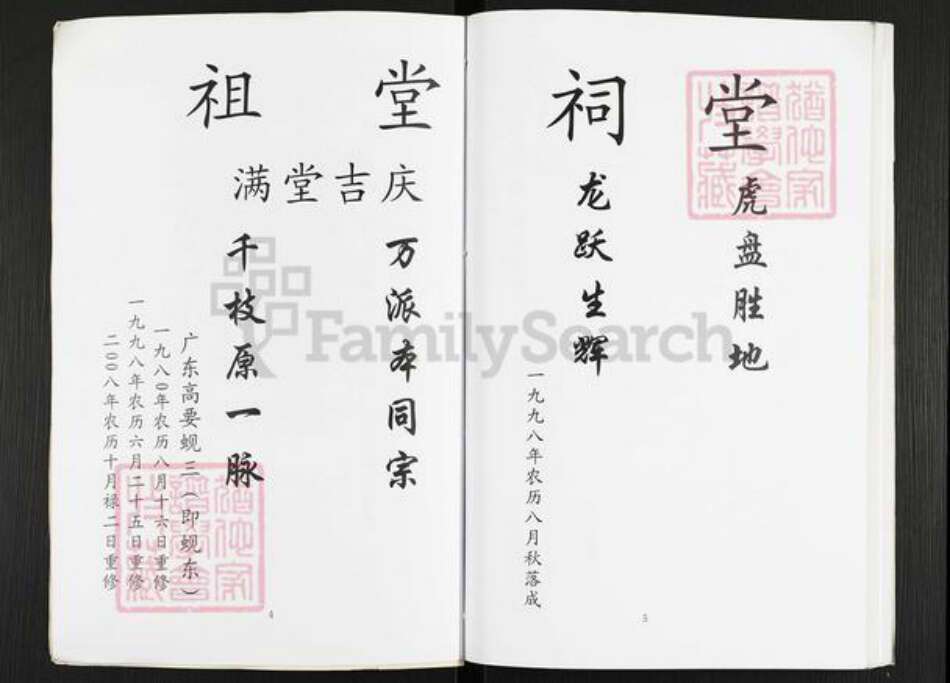 祖堂
满堂吉庆
万派本同宗
千枝原一脉
广东高要蚬三（即蚬东）
一九八0年农历八月十六日重修
一九九八年农历六月二十五日重修
二00八年农历十月禄二日重修
猶他家
譜學會
4
祠堂
虎盘胜地
龙跃生辉
一九九八年农历八月秋落成
猶他家
譜學會
5
FamilySearch